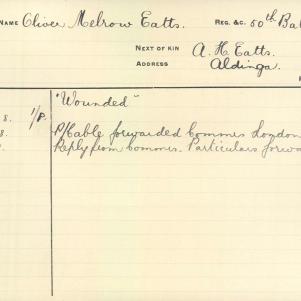 NAME Oliver Melrow Eatts. REG. &C. 50th Bat
NEXT OF KIN A. H. Eatts.
ADDRESS Aldinga.
"Wounded"
8. 1/P.
8. P/Cable forwarded Commrs London
Reply from Commrs. Particulars forwa